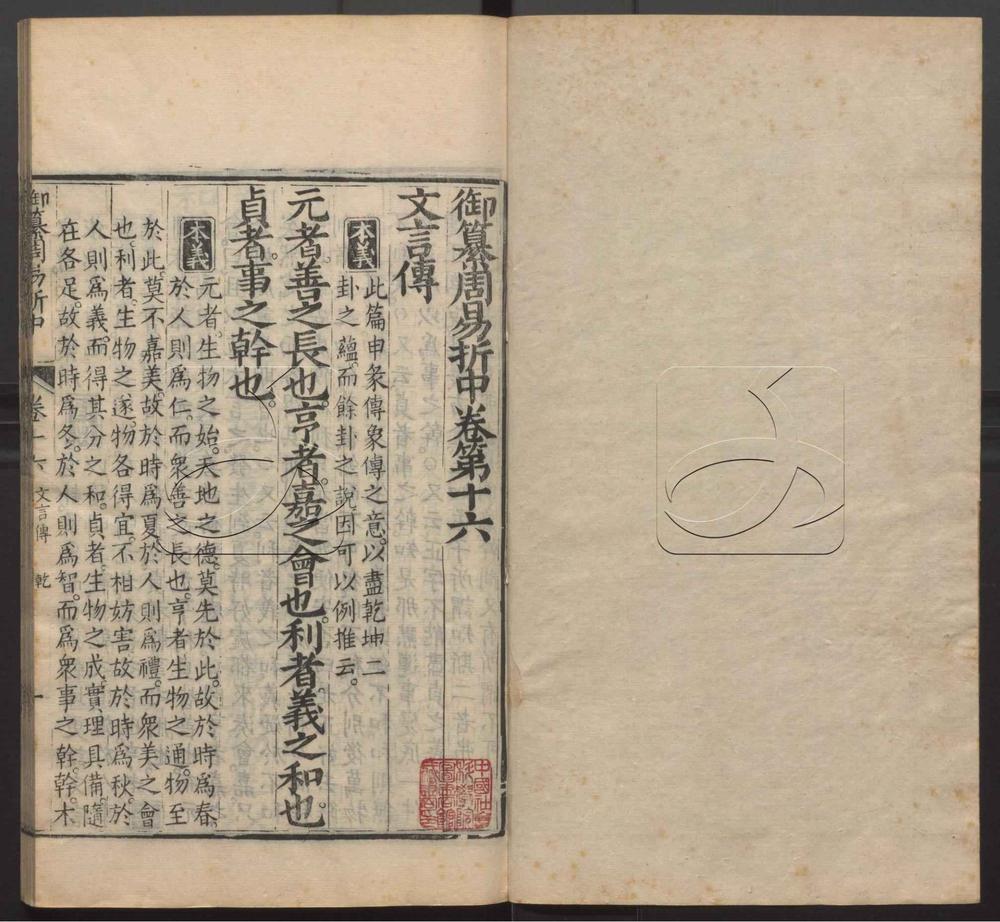 御纂周易折中卷第十六
文言傳
本義
此篇申彖傳象傳之意。以盡乾坤二
卦之蘊。而餘卦之說。因可以例推云。
元者。善之長也。亨者。嘉之會也。利者。義之和也。
貞者。事之幹也。
本義
元者。生物之始。天地之德。莫先於此。故於時爲春。
於人則爲仁。而衆善之長也。亨者生物之通。物至
於此。莫不嘉美。故於時爲夏。於人則爲禮。而衆美之會
也。利者。生物之遂。物各得宜。不相妨害。故於時爲秋。於
人則爲義。而得其分之和。貞者。生物之成。實理具備。隨
在各足。故於時爲冬。於人則爲智。而爲衆事之幹。幹。木
御纂周易折中
卷十六
文言傳
乾
一